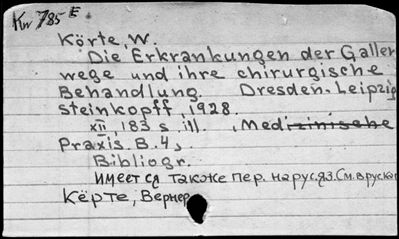 Kw 785 E
Körte, W.
Die Erkrankungen der Galler
wege und ihre chirurgische
Behandlung. Dresden-Leipzig
Steinkopff, 1928.
XII, 183 s. ill. (Medizinische
Praxis. B. 4)
Bibliogr.
Имеется также пер. на рус. яз. См. в рус. кат
Кёрте, Вернер